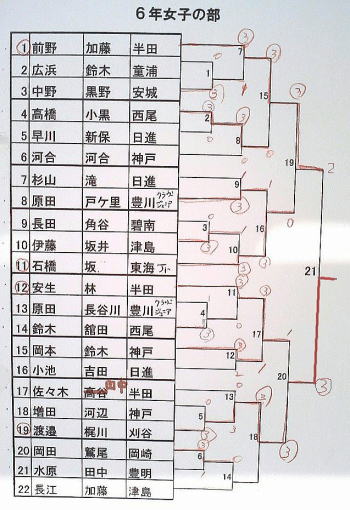 6年女子の部
1 前野 加藤 半田
2 広浜 鈴木 童浦
3 中野 黒野 安城
4 高橋 小黒 西尾
5 早川 新保 日進
6 河合 河合 神戸
7 杉山 滝 日進
8 原田 戸ケ里 豊川 クラウンジュニア
9 長田 角谷 碧南
10 伊藤 坂井 津島
11 石橋 坂 東海
12 安生 林 半田
13 原田 長谷川 豊川 クラウンジュニア
14 鈴木 舘田 西尾
15 岡本 鈴木 神戸
16 小池 吉田 日進
17 佐々木 高谷 田中 半田
18 増田 河辺 神戸
19 渡邉 梶川 刈谷
20 岡田 鷲尾 岡崎
21 水原 田中 豊明
22 長江 加藤 津島
1
2
3
4
5
6
7
8
9
10
11
12
13
14
15
16
17
18
19
20
21